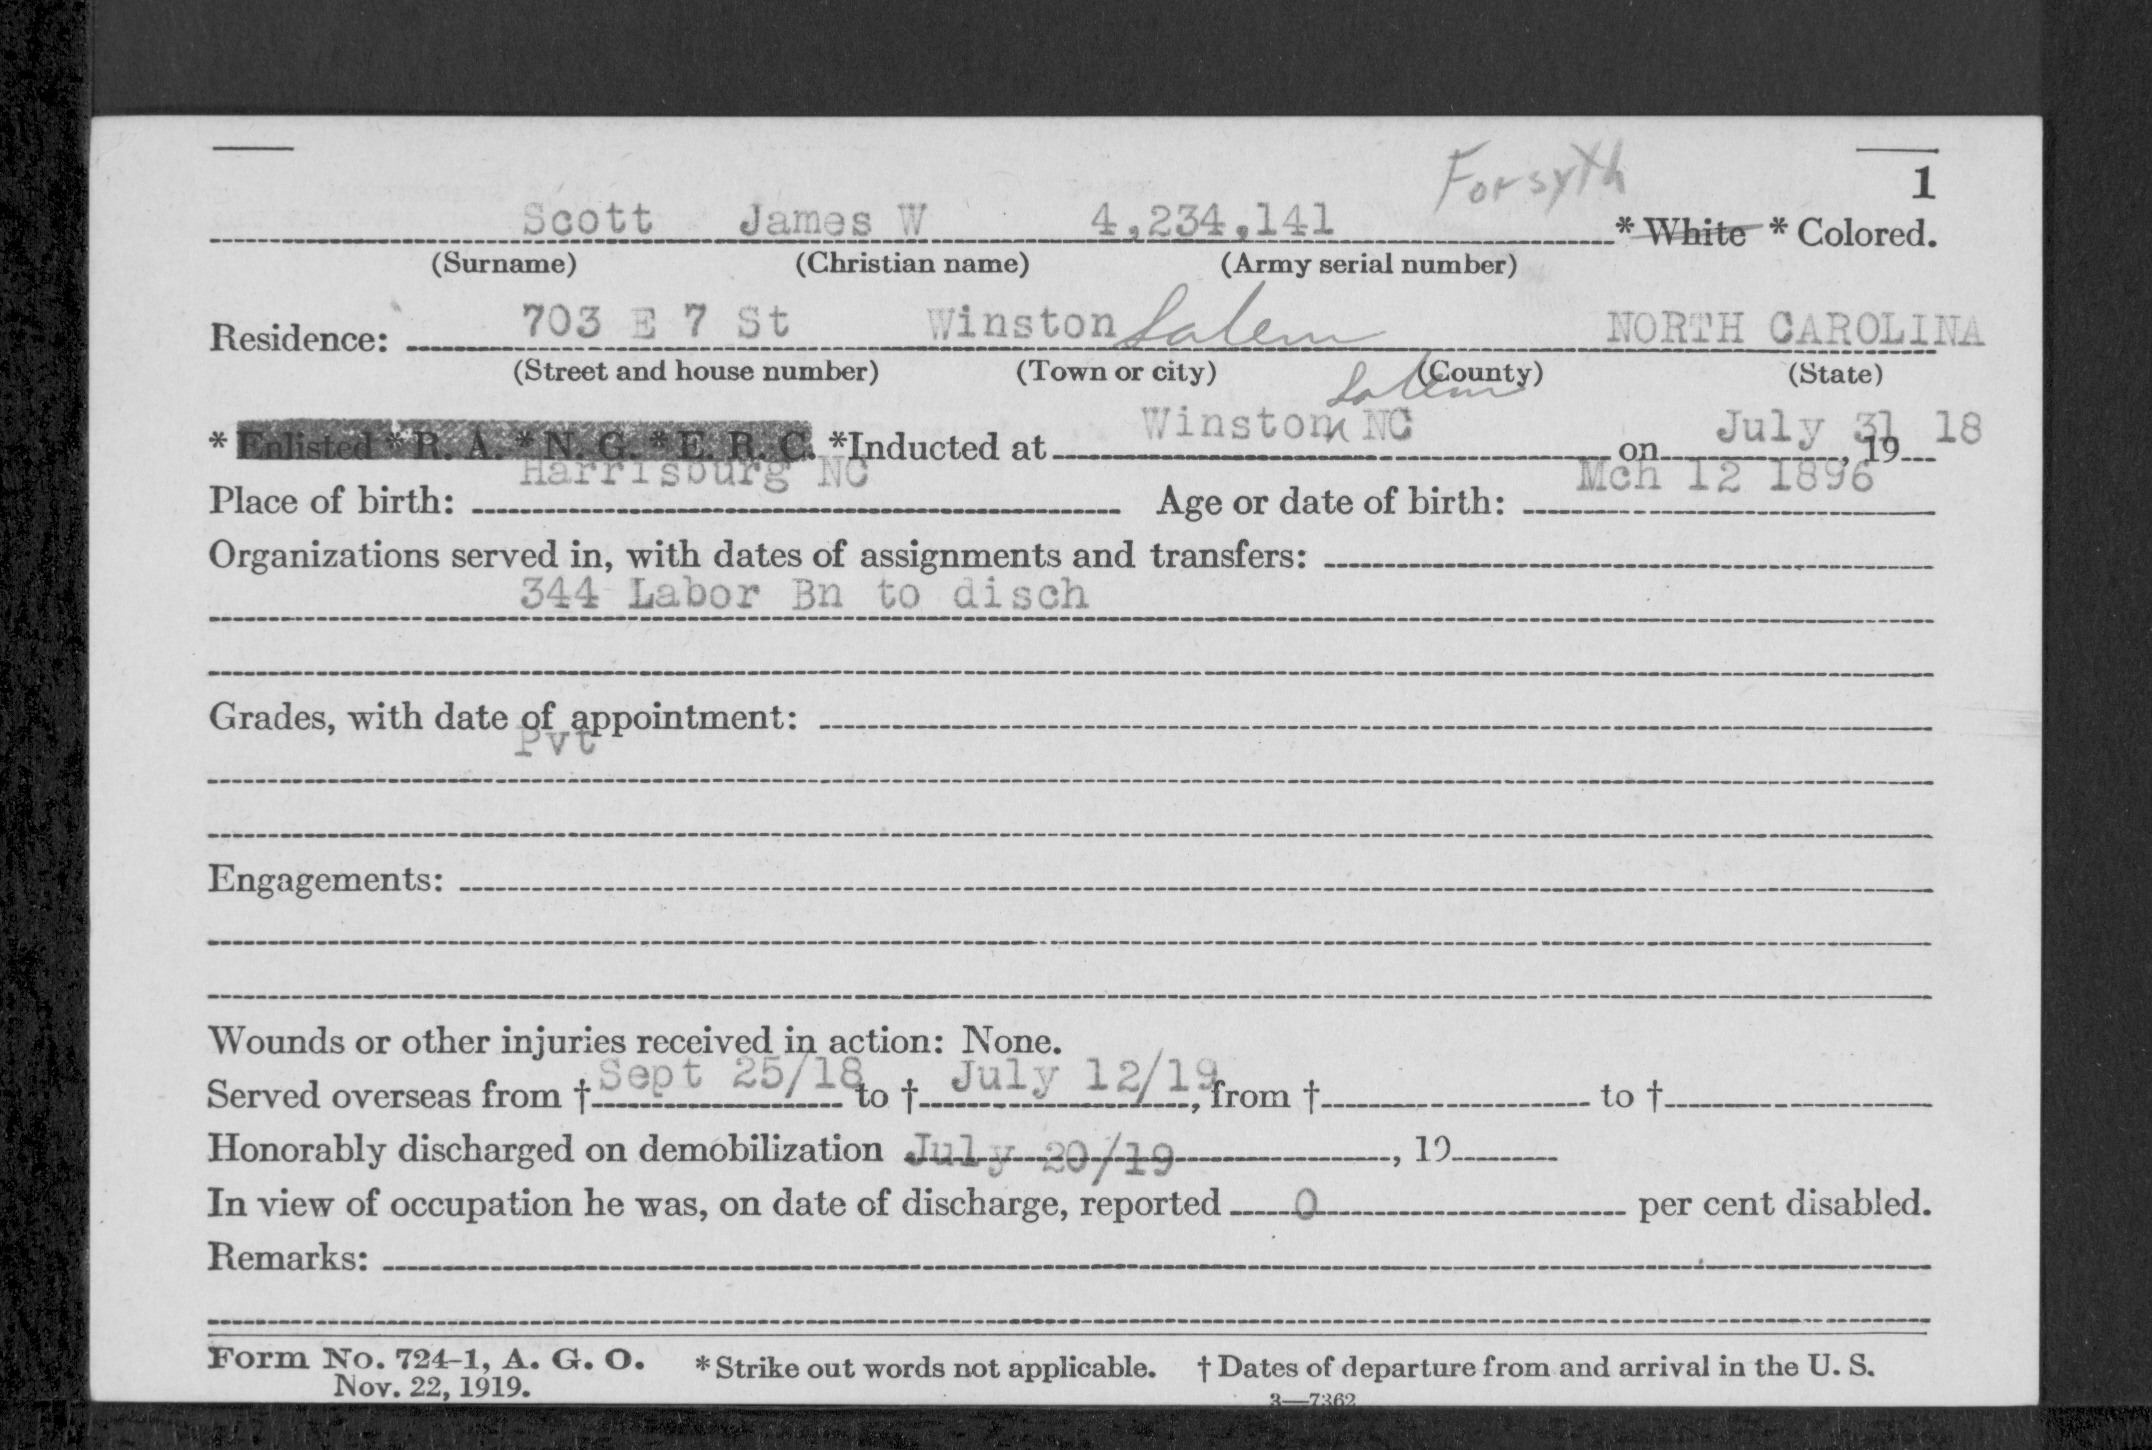 Forsyth 1
Scott James W 4,234,141 * White * Colored.
(Surname) (Christian name) (Army serial number)
Residence: 703 E 7 St Winston Salem NORTH CAROLINA
(Street and house number) (Town or city) (County) (State)
* Enlisted * R. A. * N. G. * E. R. C. *Inducted at Winston Salem NC on July 31, 19 18
Place of birth: Harrisburg NC Age or date of birth: Mch 12 1896
Organizations served in, with dates of assignments and transfers:
344 Labor Bn to disch
Grades, with date of appointment:
Pvt
Engagements:
Wounds or other injuries received in action: None.
Served overseas from † Sept 25/18 to † July 12/19, from † to †
Honorably discharged on demobilization July 20/19, 19
In view of occupation he was, on date of discharge, reported 0 per cent disabled.
Remarks:
Form No. 724-1, A. G. O. * Strike out words not applicable. † Dates of departure from and arrival in the U. S.
Nov. 22, 1919.
3—7362